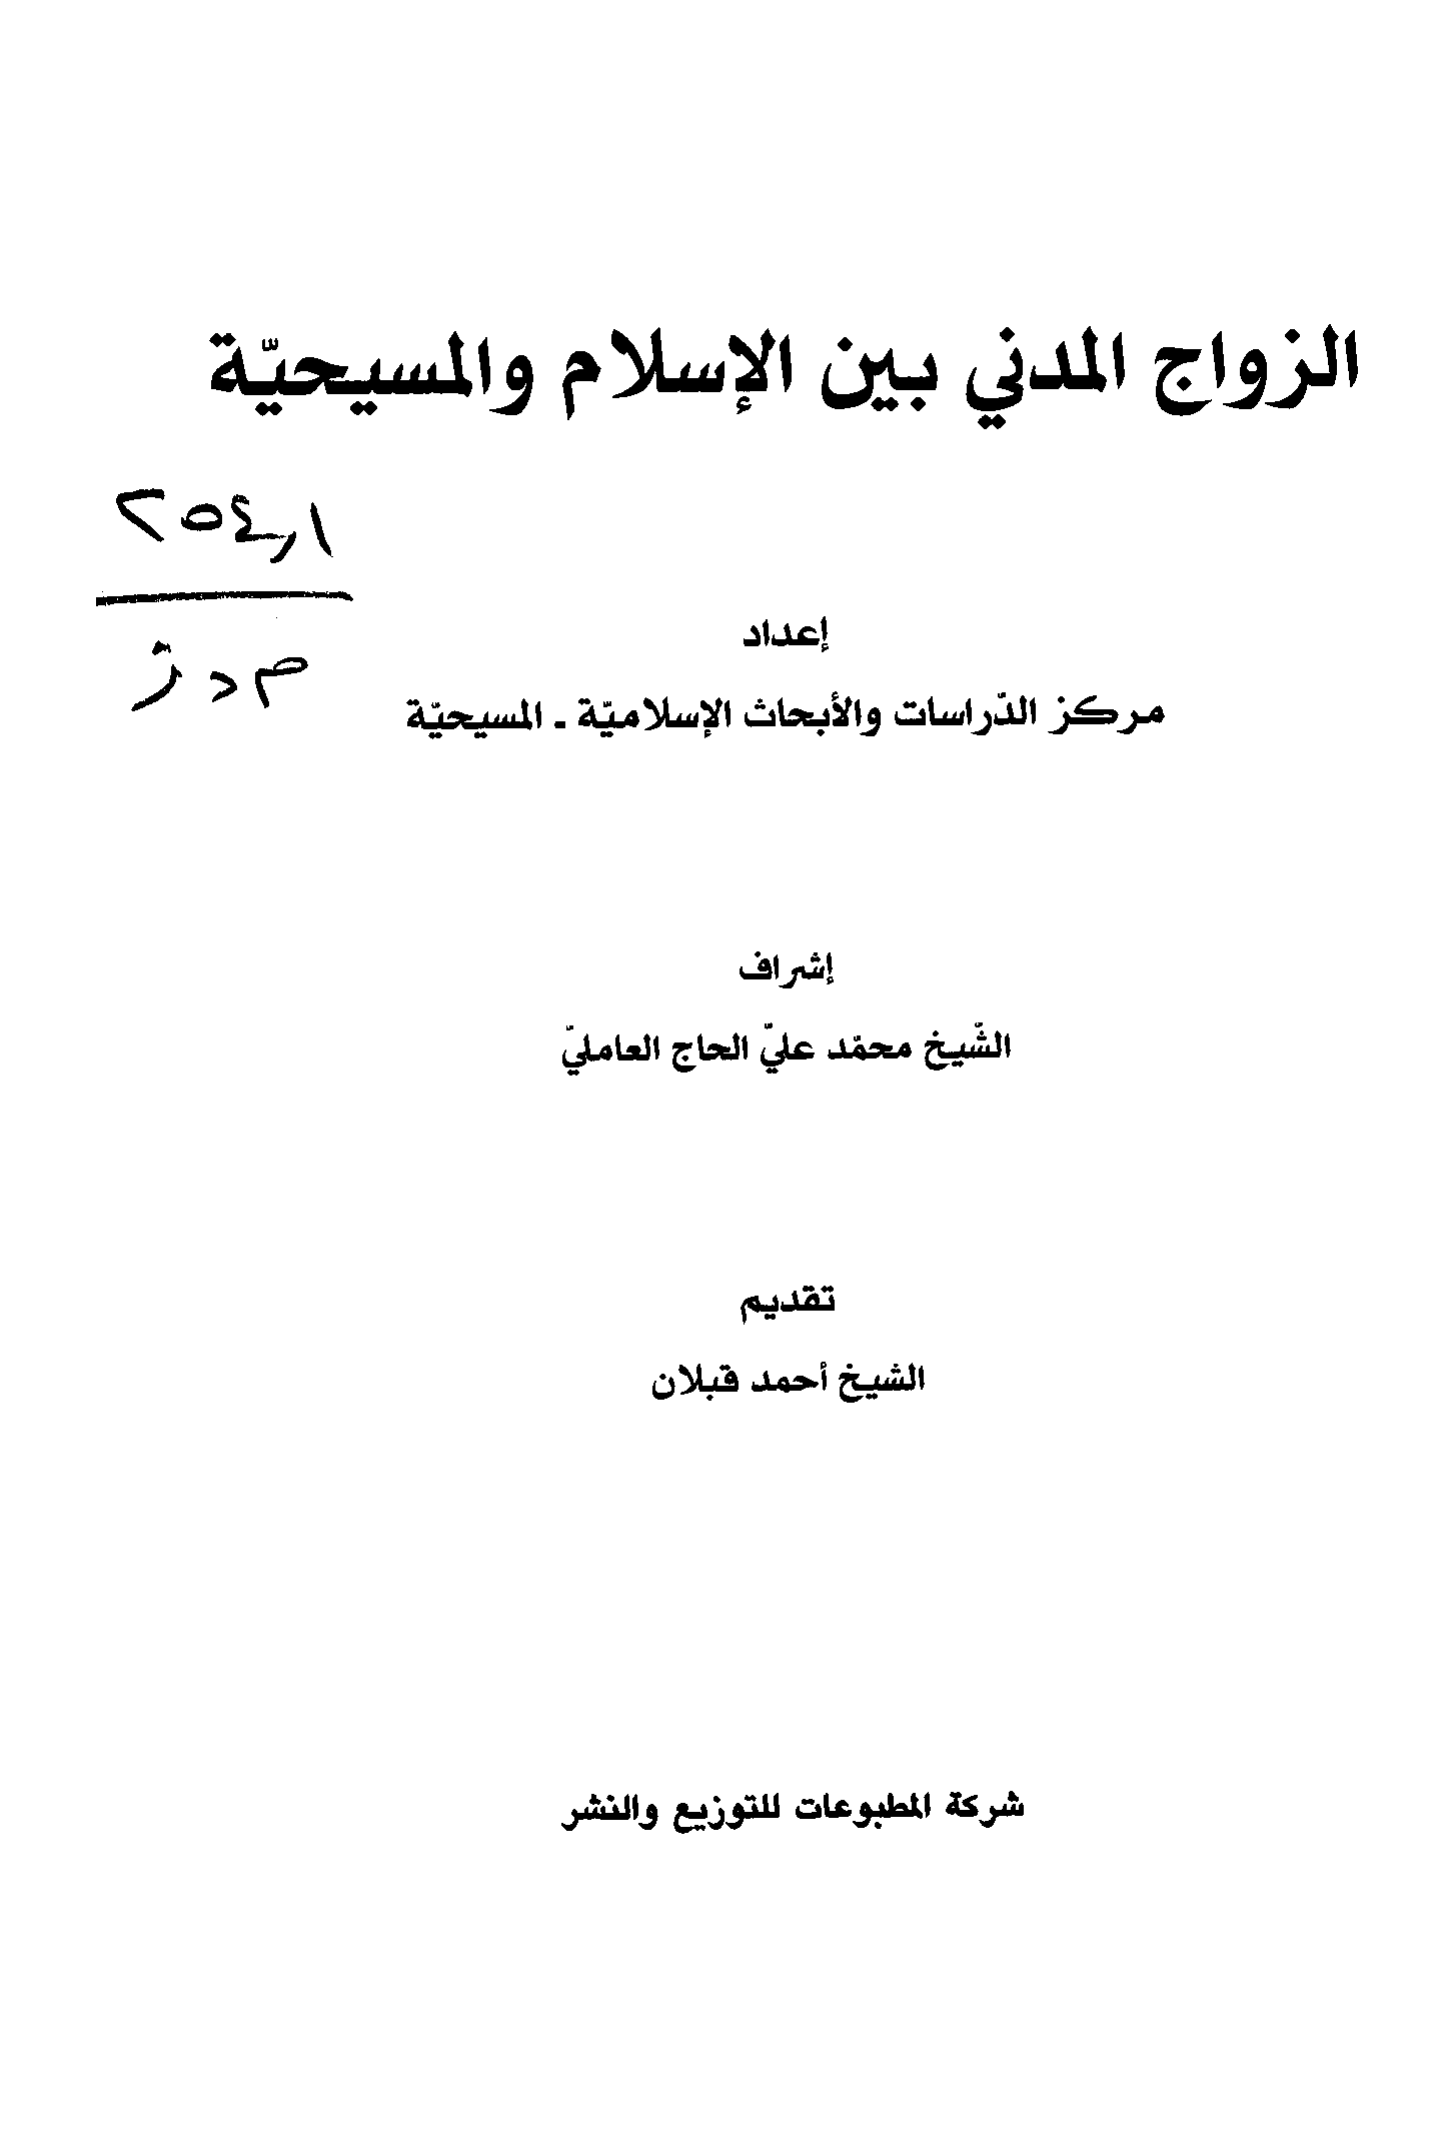 الزواج المدني بين الإسلام والمسيحيّة
٢٥٤,١
م د ز
إعداد
مركز الدّراسات والأبحاث الإسلاميّة - المسيحيّة
إشراف
الشّيخ محمّد عليّ الحاج العامليّ
تقديم
الشيخ أحمد قبلان
شركة المطبوعات للتوزيع والنشر